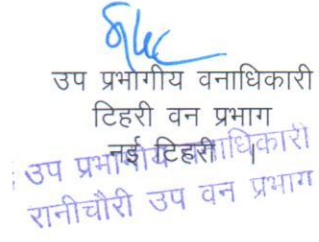 उप प्रभागीय वनाधिकारी
टिहरी वन प्रभाग
नई टिहरी ।
उप प्रभागीय वनाधिकारी
रानीचौरी उप वन प्रभाग